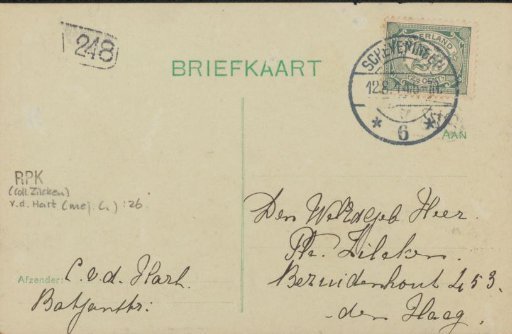 248
BRIEFKAART
NEDERLAND
SCHEVENINGEN
12.8.
6
AAN
RPK
(coll. Zilcken)
v.d. Hart (mej. C.) : 26.
Den WelEdGeb Heer.
Ph. Zilcken.
Bezuidenhout 453.
den Haag.
Afzender: C. v. d. Hart.
Batjanstr: